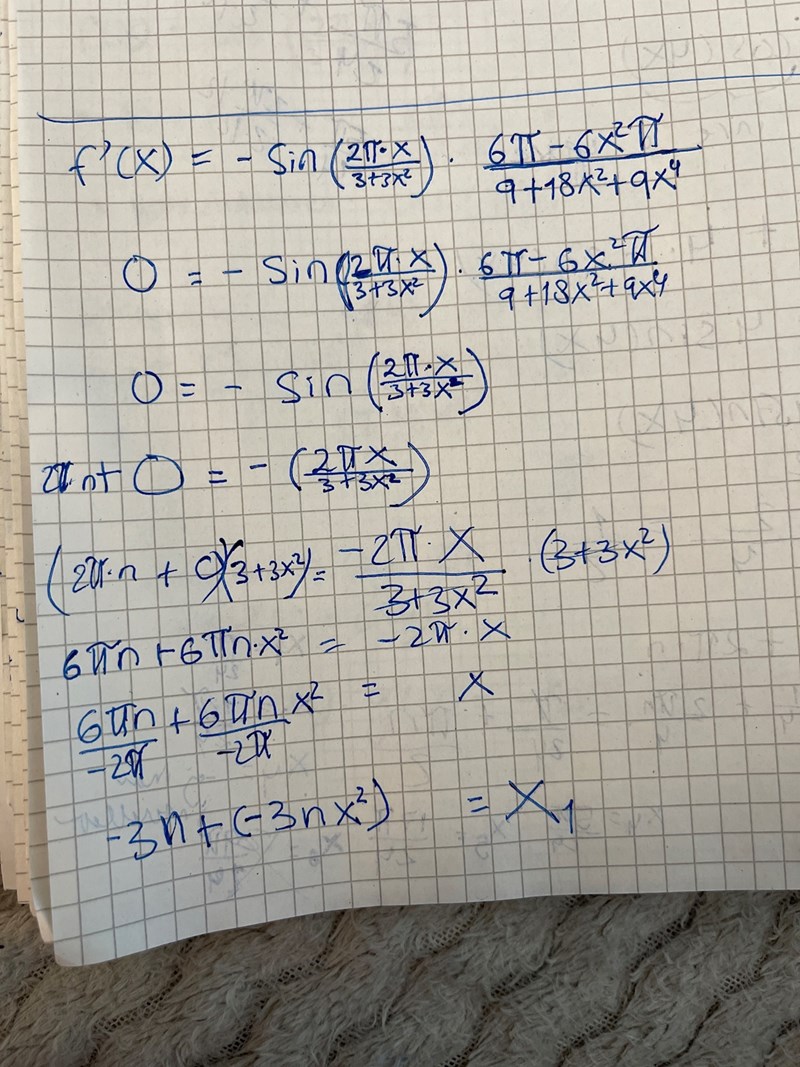 f'(x) = - sin (2π·x / 3+3x²) · 6π - 6x²π / 9+18x²+9x⁴
0 = - sin (2π·x / 3+3x²) · 6π - 6x²π / 9+18x²+9x⁴
0 = - sin (2π·x / 3+3x²)
2πn+ 0 = - (2πx / 3+3x²)
(2π·n + 0)(3+3x²) = -2π·x / 3+3x² · (3+3x²)
6πn + 6πn·x² = -2π·x
6πn / -2π + 6πn / -2π x² = x
-3n+(-3nx²) = x₁